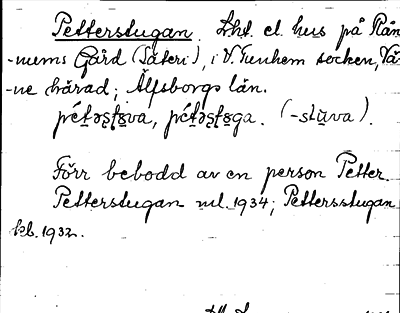 Petterstugan. Lht. el. hus på Rån
-nums Gård (Säteri), i V. Tunhem socken, Vä
-ne härad; Älfsborgs län.
pétəṣtu̥va, pétəṣtu̥ga. (-stu̥va).
Förr bebodd av en person Petter.
Petterstugan ml. 1934; Pettersstugan
kb. 1932.